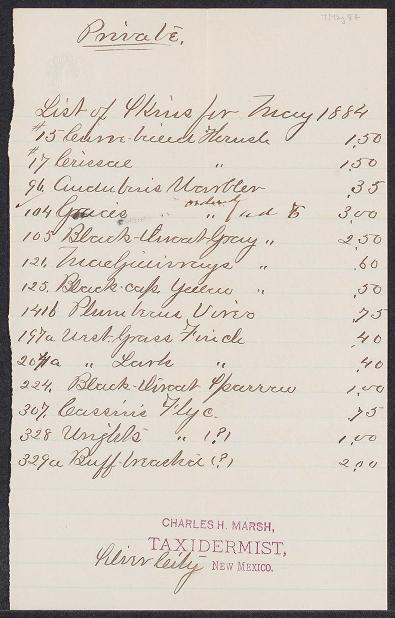 Private.
List of Skins for May 1884
#15 Curve-billed Thrush 1,50
#17 Crissae " 1,50
96 Audubon's Warbler ,35
104 Gracie's " " 3,00
105 Black-throat-Gray " 2,50
121, MacGillivray's " ,60
125, Black-cap Yellow " ,50
141b Plumbeus Vireo ,75
197a West-Grass Finch ,40
204a " Lark " ,40
224, Black-throat Sparrow 1,00
307, Cassin's Flyc. ,75
328 Wright's " (?) 1,00
329a Buff-breasted (?) 2,00
CHARLES H. MARSH,
TAXIDERMIST,
Silver City NEW MEXICO.